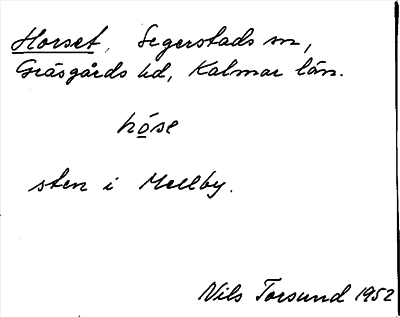 Horset, Segerstads sn,
Gräsgårds hd, Kalmar län.
hose
sten i Mellby.
Nils Torsund 1952